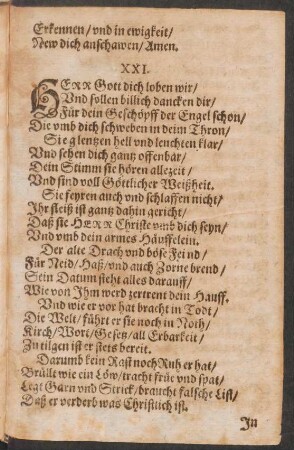 Erkennen / vnd in ewigkeit /
New dich anschawen / Amen.
XXI.
HERR Gott dich loben wir /
Vnd sollen billich dancken dir /
Für dein Geschöpff der Engel schon /
Die vmb dich schweben in deim Thron /
Sie glentzen hell vnd leuchten klar /
Vnd sehen dich gantz offenbar /
Dein Stimm sie hören allezeit /
Vnd sind voll Göttlicher Weißheit.
Sie feyren auch vnd schlaffen nicht /
Ihr fleiß ist gantz dahin gericht /
Daß sie HERR Christe vmb dich seyn /
Vnd vmb dein armes Häuffelein.
Der alte Drach vnd böse Feind /
Für Neid / Haß / vnd auch Zorne brend /
Sein Datum steht alles darauff /
Wie von Ihm werd zertrent dein Hauff.
Vnd wie er vor hat bracht in Todt /
Die Welt / führt er sie noch in Noth /
Kirch / Wort / Gesetz / all Erbarkeit /
Zu tilgen ist er stets bereit.
Darumb kein Rast noch Ruh er hat /
Brüllt wie ein Löw / tracht früe vnd spat /
Legt Garn vnd Strick / braucht falsche List /
Daß er verderb was Christlich ist.
In